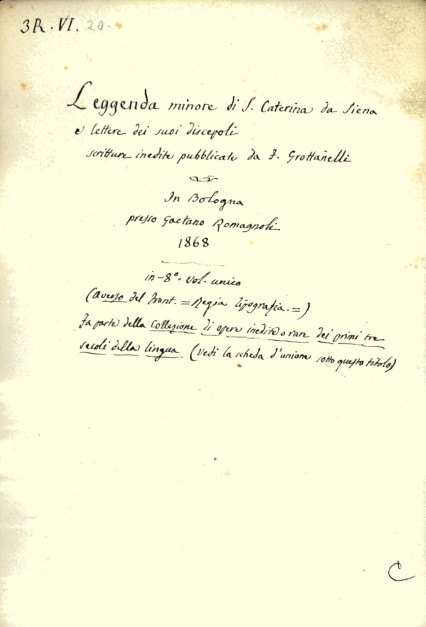 3R. VI. 20.
Leggenda minore di S. Caterina da Siena
e lettere dei suoi discepoli
scritture inedite pubblicate da F. Grottanelli
In Bologna
presso Gaetano Romagnoli
1868
in-8º. vol. unico
(averso del front. = Regia tipografia. =)
Fa parte della Collezione di opere inedite o rare dei primi tre
secoli della lingua (vedi la scheda d'unione sotto questo titolo)
C